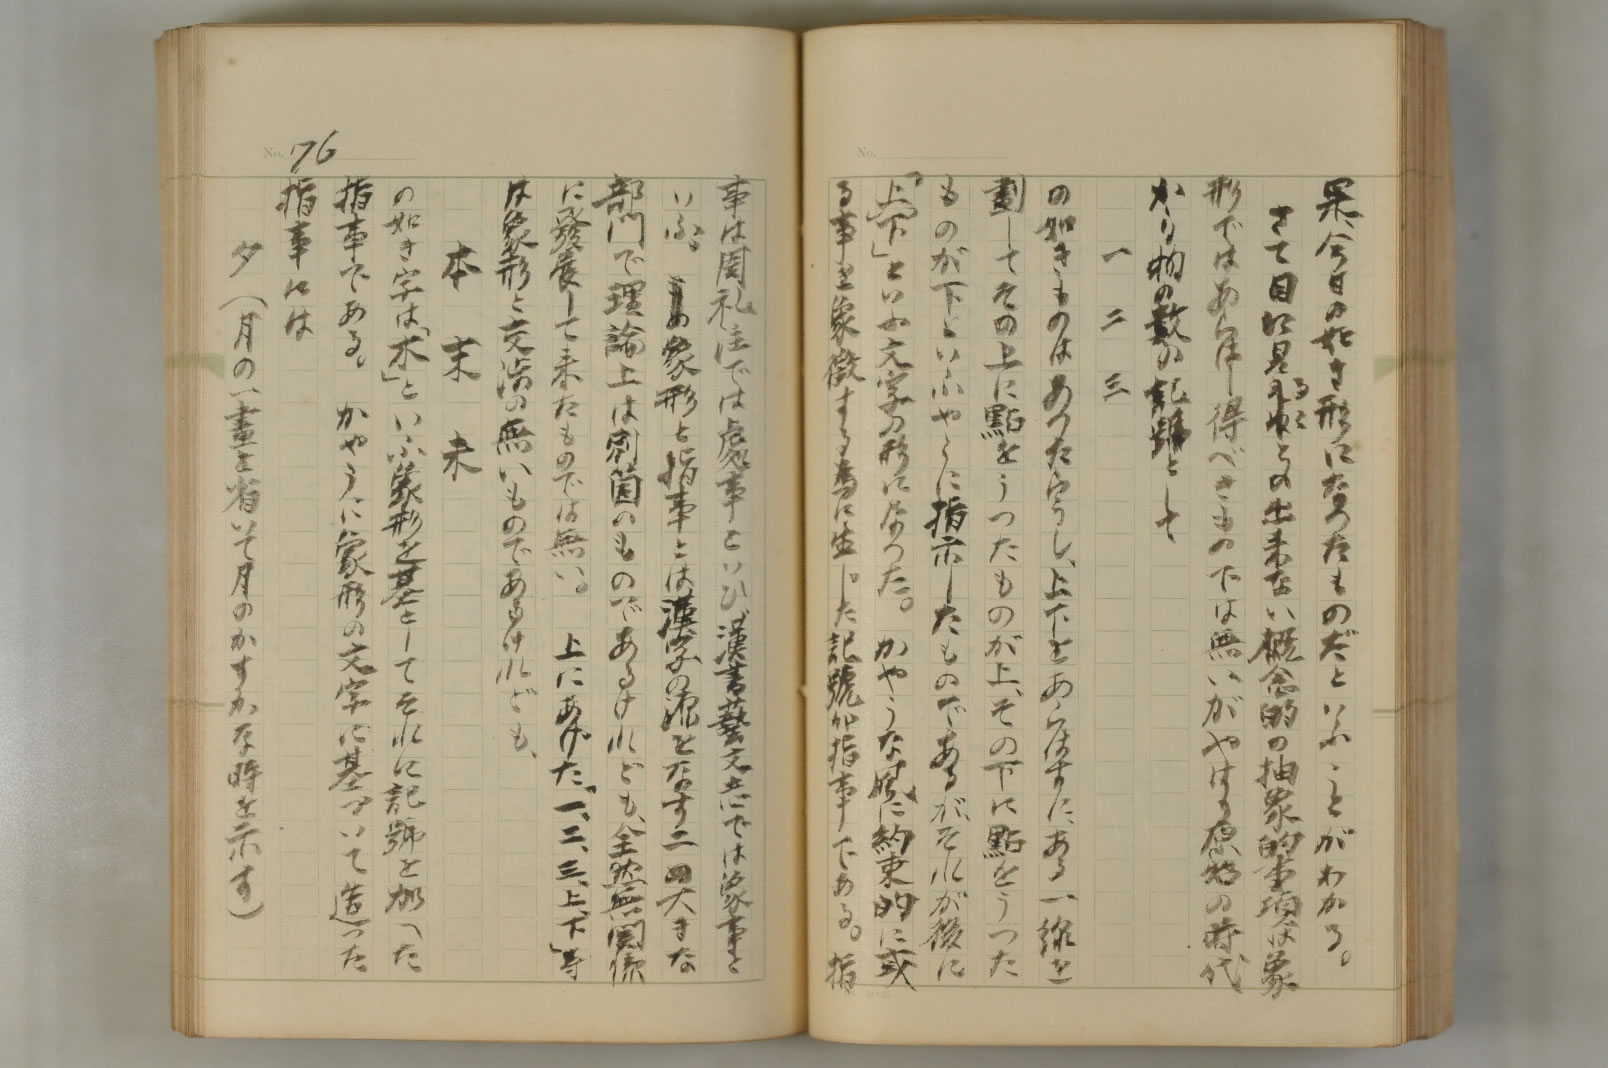 果、今日の如き形になつたものだといふことがわかる。
さて目に見ることの出来ない概念的の抽象的事項は象
形ではあらはし得べきもの下は無いがやはり原始の時代
から物の数の記號として
一 二 三
の如きものはあつた宇うし、上下をあらはすにある一線を
劃してその上に點をうつたものが上、その下に點をうつた
ものが下といふやうに指示したものであるが、それが後に
「上下」といふ文字の形になつた。かやうな風に約束的に或
る事を象徴する為に生じた記號が指事である。指
No. 176
事は周礼注では處事といひ、漢書藝文志では象事と
いふ。この象形と指事とは漢字の源をなす二四大きな
部門で理論上は別箇のものであるけれども、全然無関係
に發展して来たものでは無い。上にあげた、「一、二、三、上、下」等
は象形と交渉の無いものであるけれども、
本 末 未
の如き字は、「木」といふ象形を基としてそれに記號を加へた
指事である。かやうに象形の文字に基づいて造つた
指事には
夕（月の一畫を省いて月のかすかな時を示す）
No.